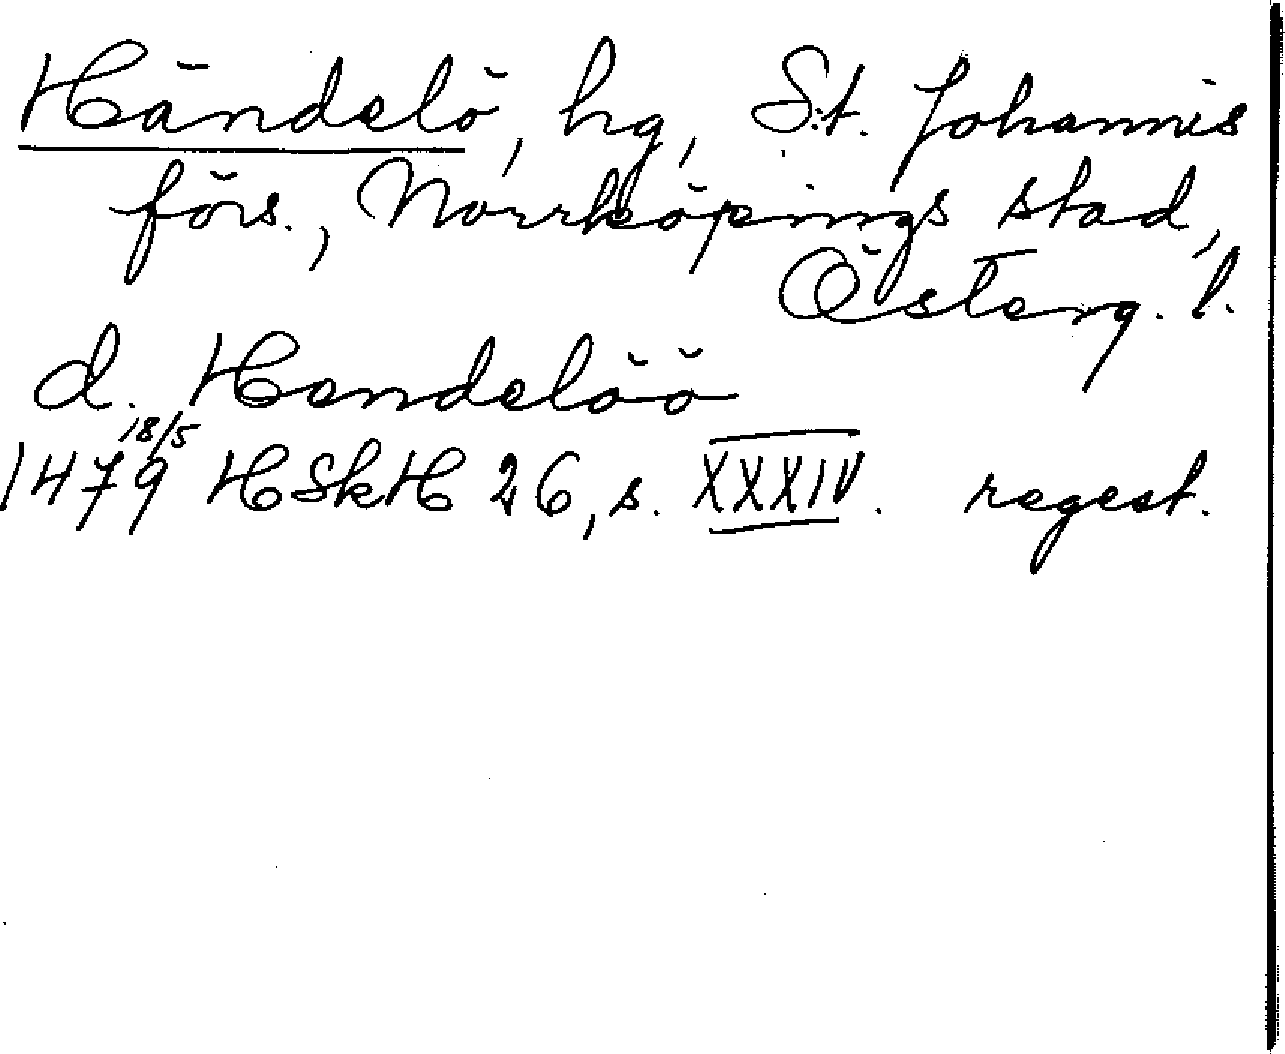 Händelö, hg, S:t. Johannis
förs., Norrköpings stad,
Österg. l.
d. Hendelöö
18/5
1479 HSkH 26, s. XXXIV. regest.